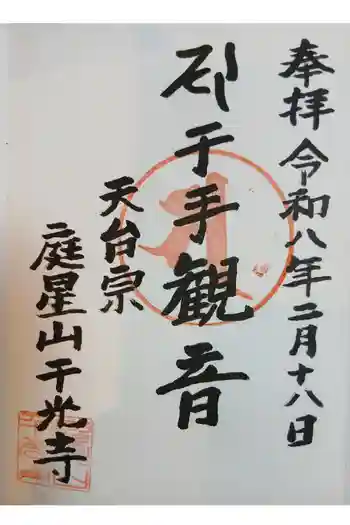 奉拝 令和八年二月十八日
千手観音
天台宗
二庭星山千光寺